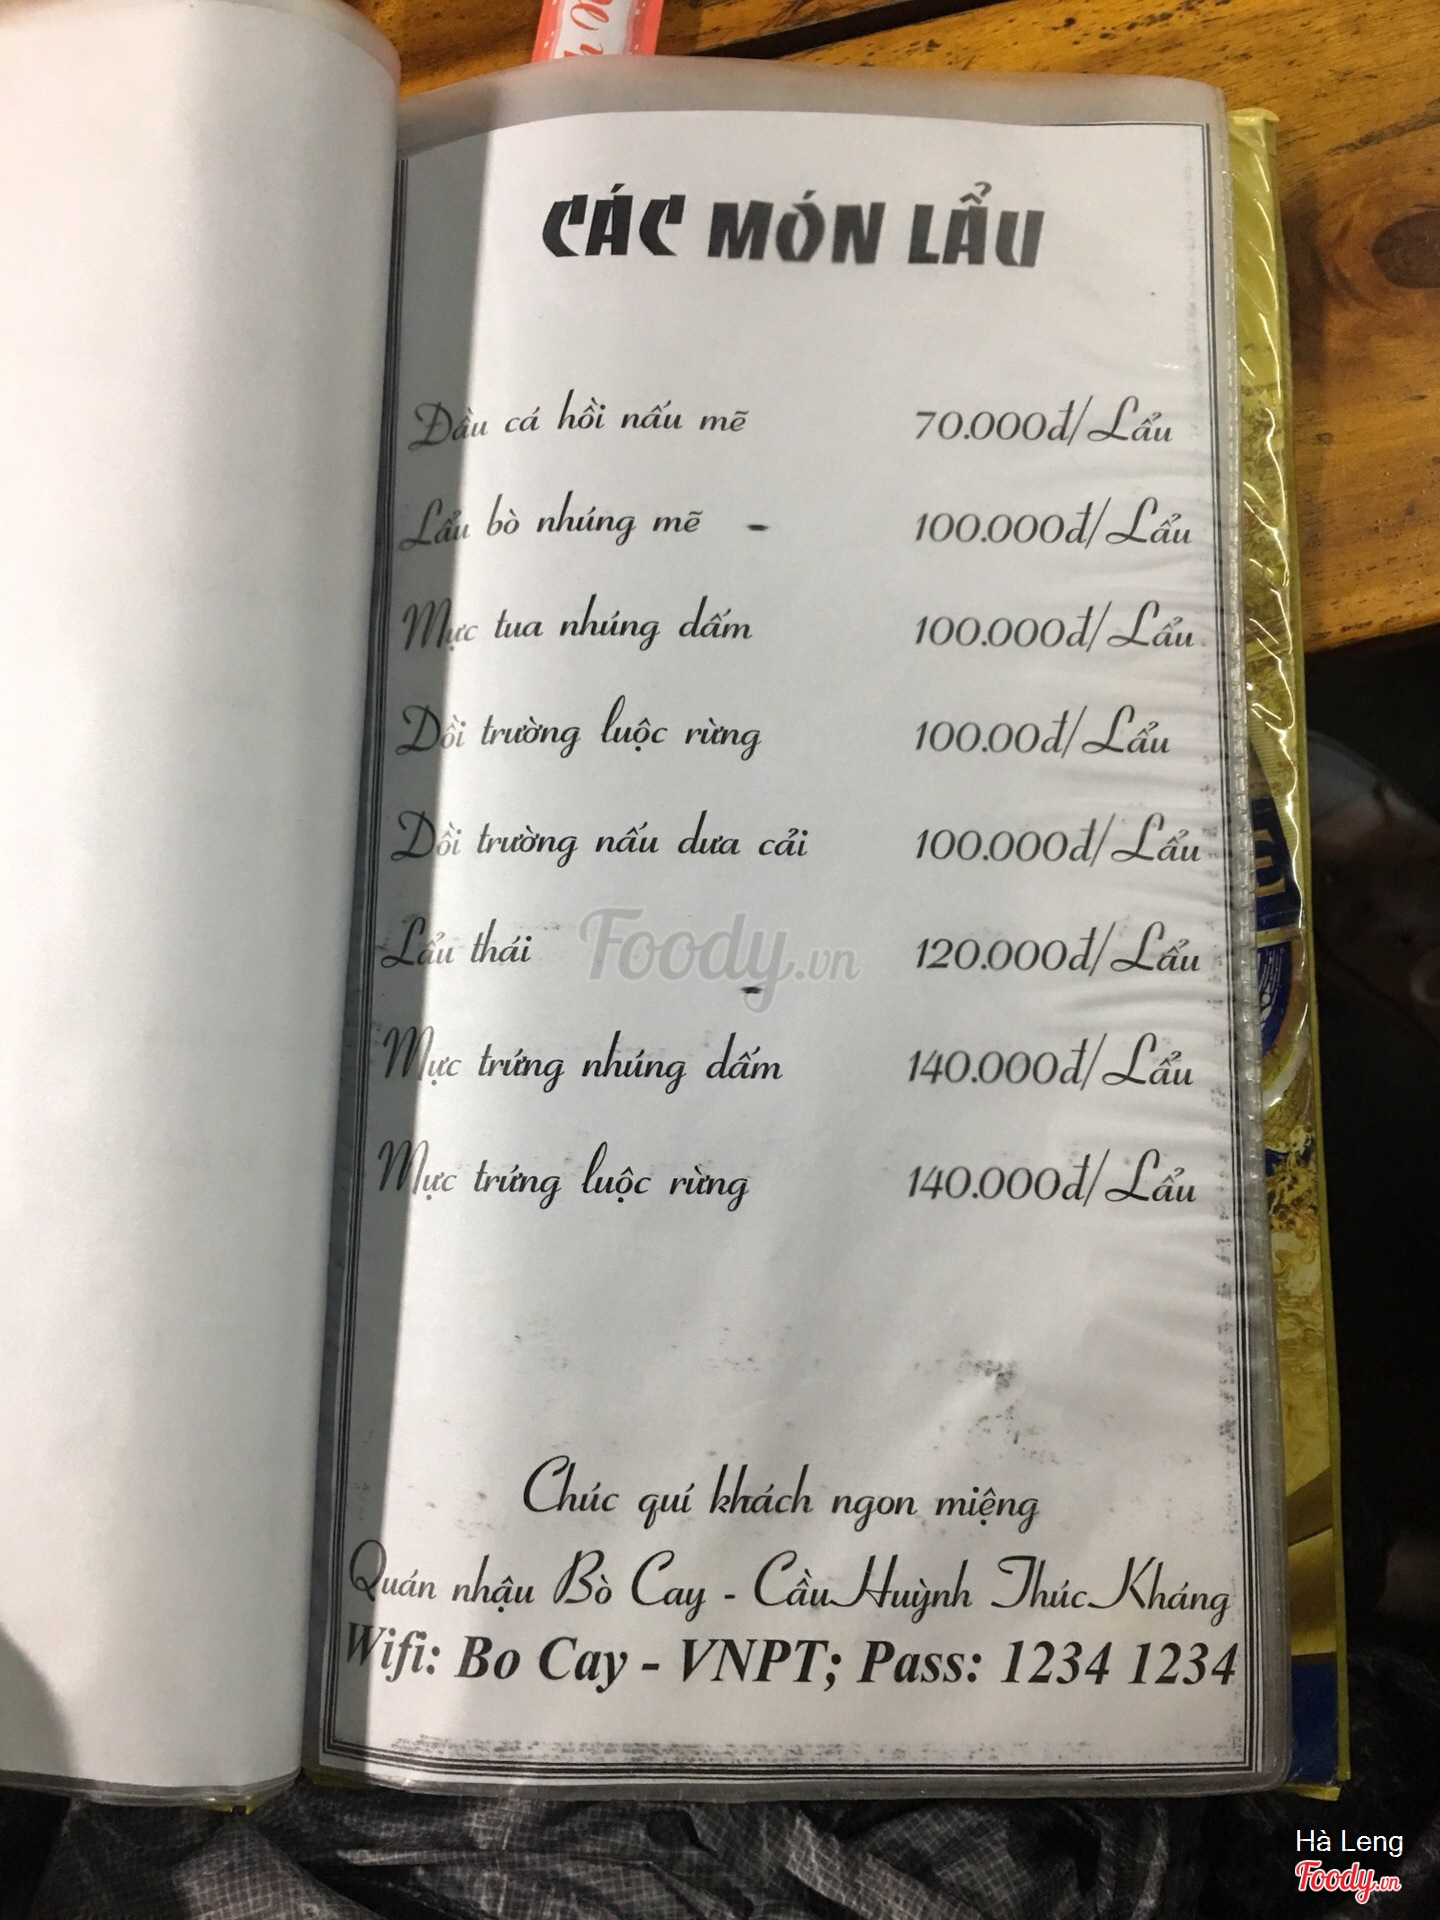 CÁC MÓN LẨU
Đầu cá hồi nấu mẽ 70.000đ/Lẩu
Lẩu bò nhúng mẽ 100.000đ/Lẩu
Mực tua nhúng dấm 100.000đ/Lẩu
Dồi trường luộc rừng 100.00đ/Lẩu
Dồi trường nấu dưa cải 100.000đ/Lẩu
Lẩu thái 120.000đ/Lẩu
Foody.vn
Mực trứng nhúng dấm 140.000đ/Lẩu
Mực trứng luộc rừng 140.000đ/Lẩu
Chúc quí khách ngon miệng
Quán nhậu Bò Cay - Cầu Huỳnh Thúc Kháng
Wifi: Bo Cay - VNPT; Pass: 1234 1234
Hà Leng
Foody.vn